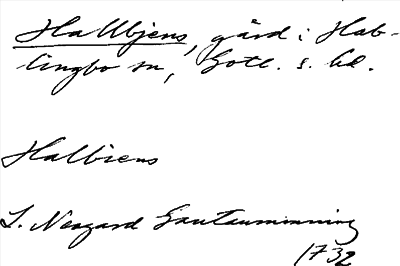 Hallbjens, gård i Hab-
lingbo sn, Gotl. s. hd.
Halbiens
L. Neogard Gautauminning
1732